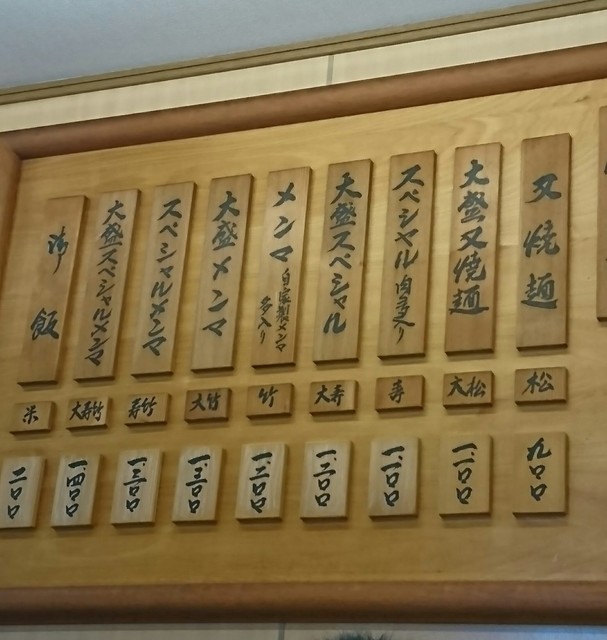 叉焼麺
大盛叉焼麺
スペシャル 肉多入り
大盛スペシャル
メンマ 自家製メンマ多入り
大盛メンマ
スペシャルメンマ
大盛スペシャルメンマ
御飯
松
大松
寿
大寿
竹
大竹
寿竹
大寿竹
米
九〇〇
一、一〇〇
一、一〇〇
一、二〇〇
一、二〇〇
一、三〇〇
一、三〇〇
一、四〇〇
二〇〇